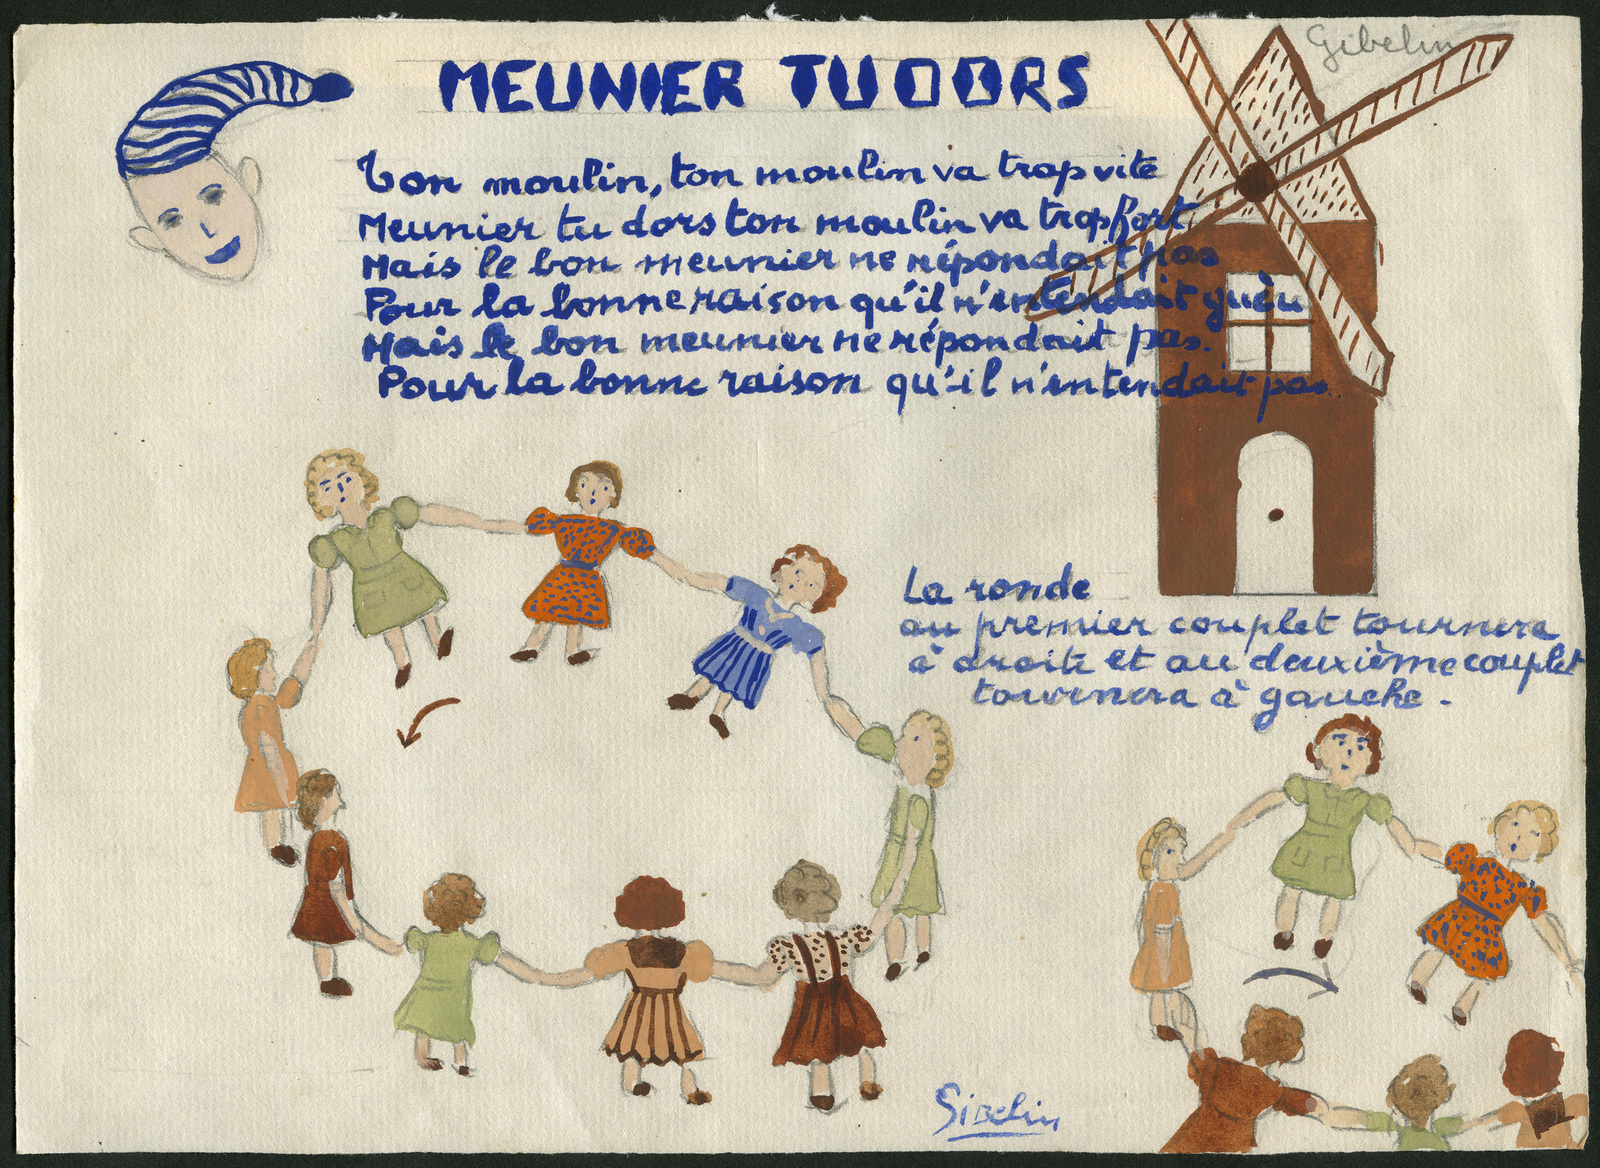 Gibelin
MEUNIER TU DORS
Ton moulin, ton moulin va trop vite
Meunier tu dors ton moulin va trop fort
Mais le bon meunier ne répondait pas
Pour la bonne raison qu'il n'entendait guèu
Mais le bon meunier ne répondait pas.
Pour la bonne raison qu'il n'entendait pas.
La ronde
au premier couplet tournera
à droite et au deuxième couplet
tournera à gauche.
Gibelin